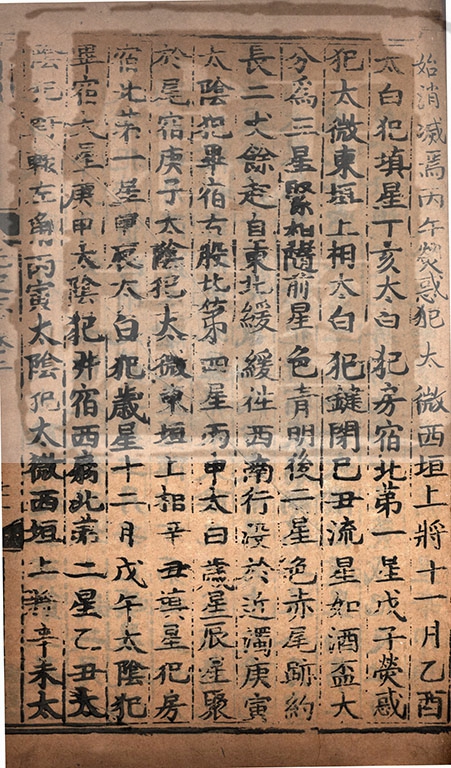 始消滅焉丙午熒惑犯太微西垣上將十一月乙酉
太白犯填星丁亥太白犯房宿北第一星戊子熒惑
犯太微東垣上相太白犯鍵閉己丑流星如酒盃大
分為三星緊相隨前星色青明後二星色赤尾跡約
長二丈餘走自東北緩緩徃西南行没於近濁庚寅
太陰犯畢宿右股北第四星丙申太白歲星辰星聚
於尾宿庚子太陰犯太微東垣上相辛丑填星犯房
宿北第一星甲辰太白犯歲星十二月戊午太陰犯
畢宿大星庚申太陰犯井宿西扇北第二星乙丑太
陰犯軒轅左角丙寅太陰犯太微西垣上將辛未太